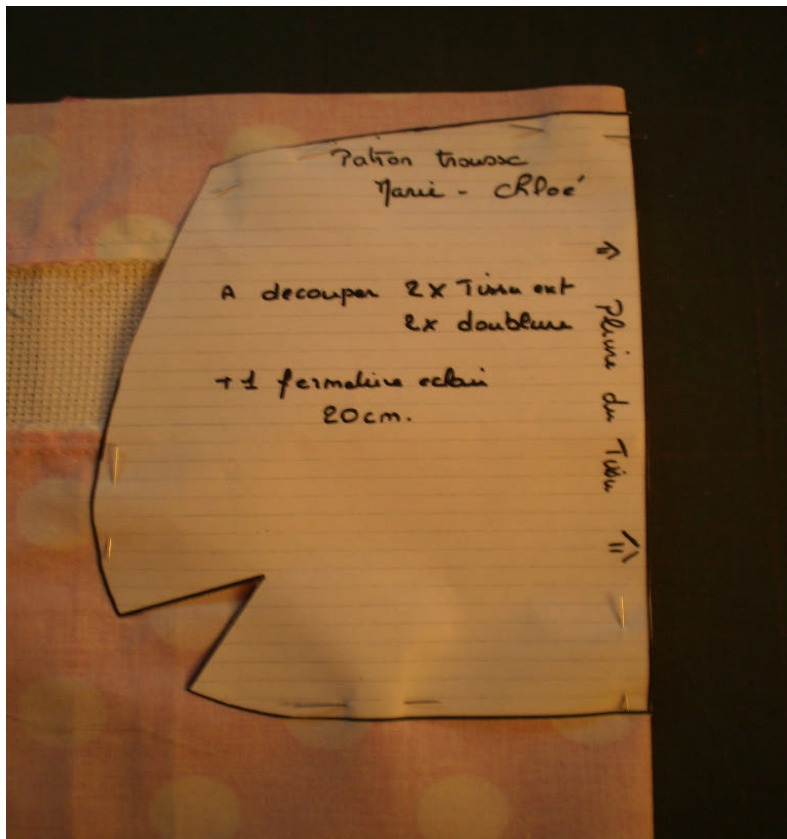 Patron trousse
Marie - Chloé
A decouper 2x Tissu ext
2x doublure
+1 fermeture eclair
20cm.
⇐ Pliure du Tissu ⇒